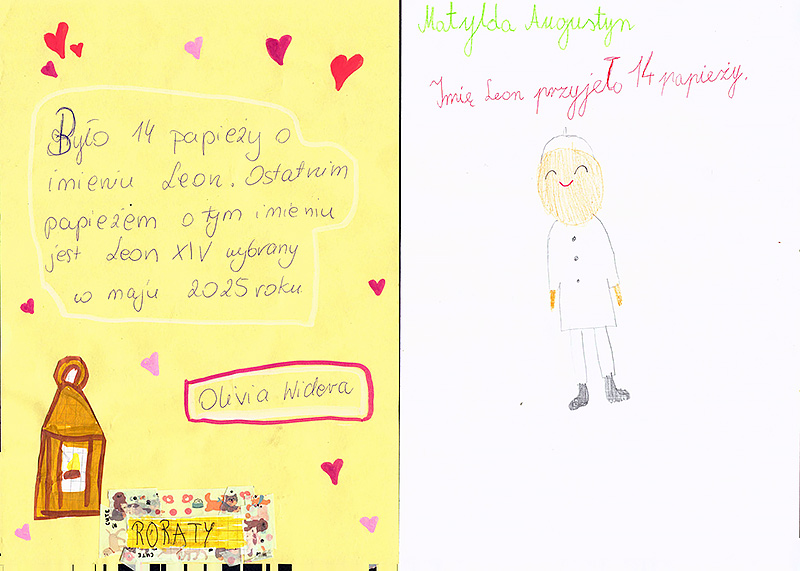 Było 14 papieży o
imieniu Leon. Ostatnim
papieżem o tym imieniu
jest Leon XIV wybrany
w maju 2025 roku
Olivia Widera
RORATY
CUTE
CUTE
Matylda Augustyn
Imię Leon przyjęło 14 papieży.